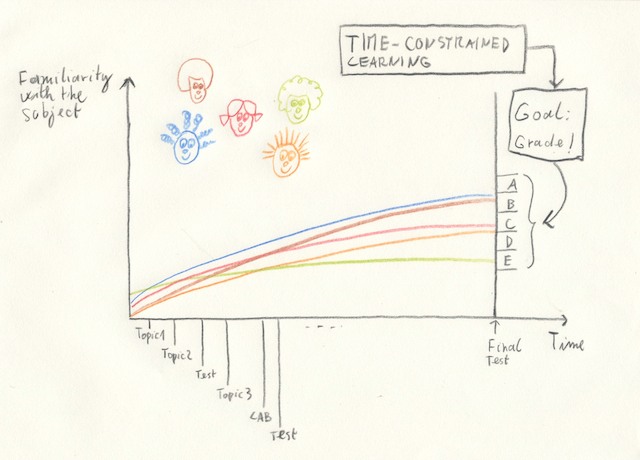 TIME-CONSTRAINED
LEARNING
Familiarity
with the
subject
Goal:
Grade!
A
B
C
D
E
Topic1
Topic2
Test
Topic3
LAB
Test
Final
Test
Time